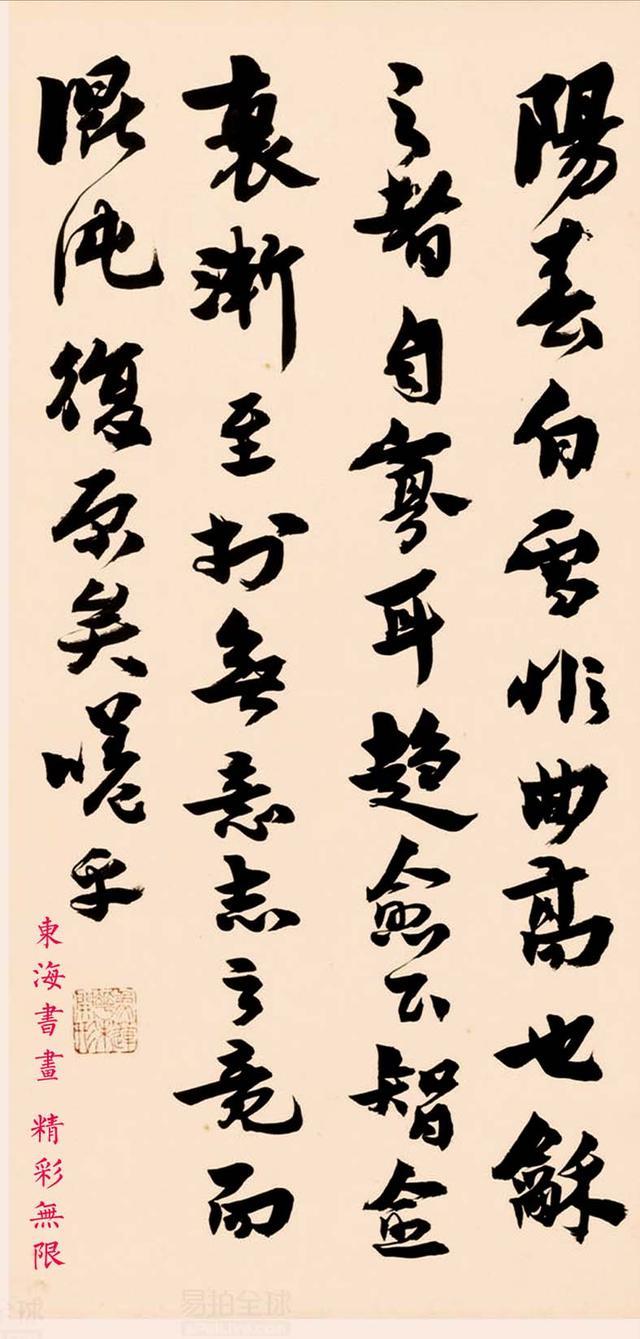 陽春白雪非曲高也龢
之者自寡耳趨愈下智愈
衰漸至於無意志之竟而
混沌復原矣嗟乎
東海書畫 精彩無限
易拍全球